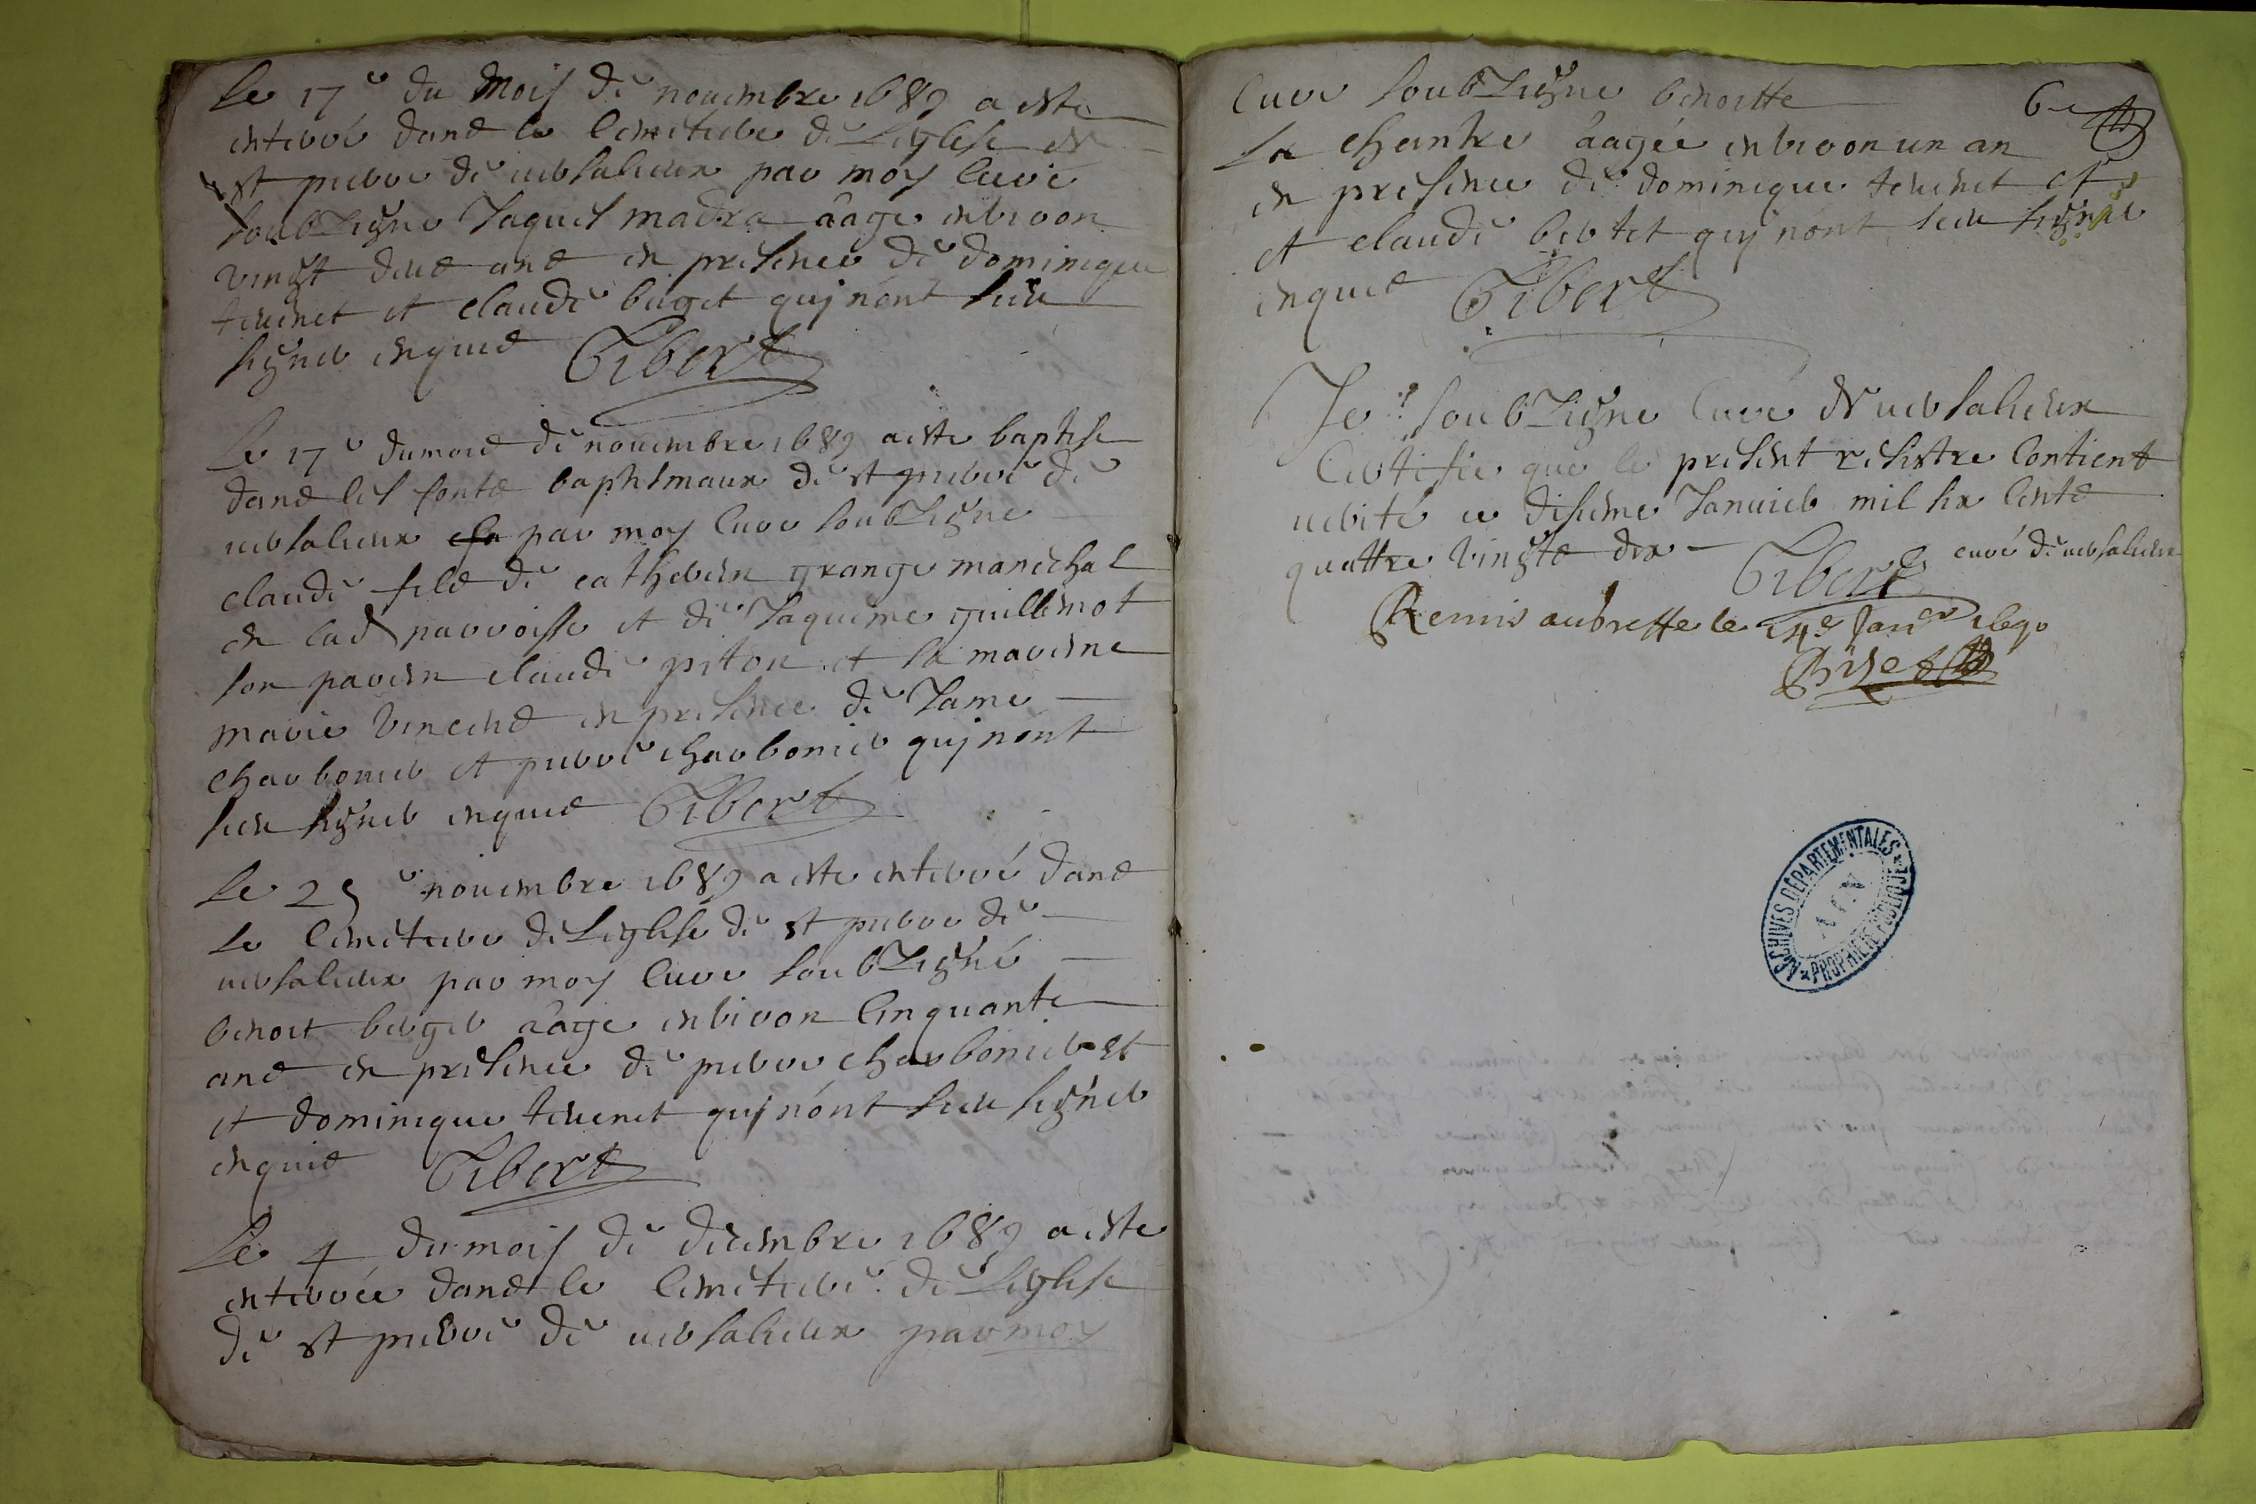 Le 17e du Mois de nouembre 1689 a este
enterré dans le Cimetiere de Leglise de
st pierre de uersalieux par moy Curé
soubZigne Jaques madra aage enuiron
vingt deus ans en presence de dominique
teuenet et claude buget qui nont sceu
signer enquis Gibert
Le 17e du mois de nouembre 1689 a este baptise
dans les fonts baptismaux de st pierre de
uersalieux par moy Cure soubZigne
claude fils de catherin grange marechal
en lad parroisse et de Jaqueme guillemot
son parein claude piton et sa mareine
marie vincend en presence de Jame
charbonier et pierre charbonier qui nont
sceu signer enquis Gibert
Le 25e nouembre 1689 a este enterré dans
le Cimetiere de Leglise de st pierre de
uersalieux par moy Cure soubZigné
benoit berger aage enuiron Cinquante
ans en presence de pierre charbonier et
et dominique teuenet qui nont sceu signer
enquis Gibert
Le 4 du mois de decembre 1689 a este
enterrée dans le Cimetiere de Leglise
de st pierre de uersalieux par moy
6e
Cure soubZigne benoitte
La chantre aagée enuiron un an
en presence de dominique teuenet et
et claude bertet qui nont sceu signer
enquis Gibert
Je soubZigne Curé de uersalieux
Certifie que le present resistre Contient
uerité ce disieme Januier mil six Cents
quattre vingts dix Gibert curé de uersalieux
Remis au breffe le 14e Janer 1690
ARCHIVES DÉPARTEMENTALES
AIN
PROPRIÉTÉ PUBLIQUE